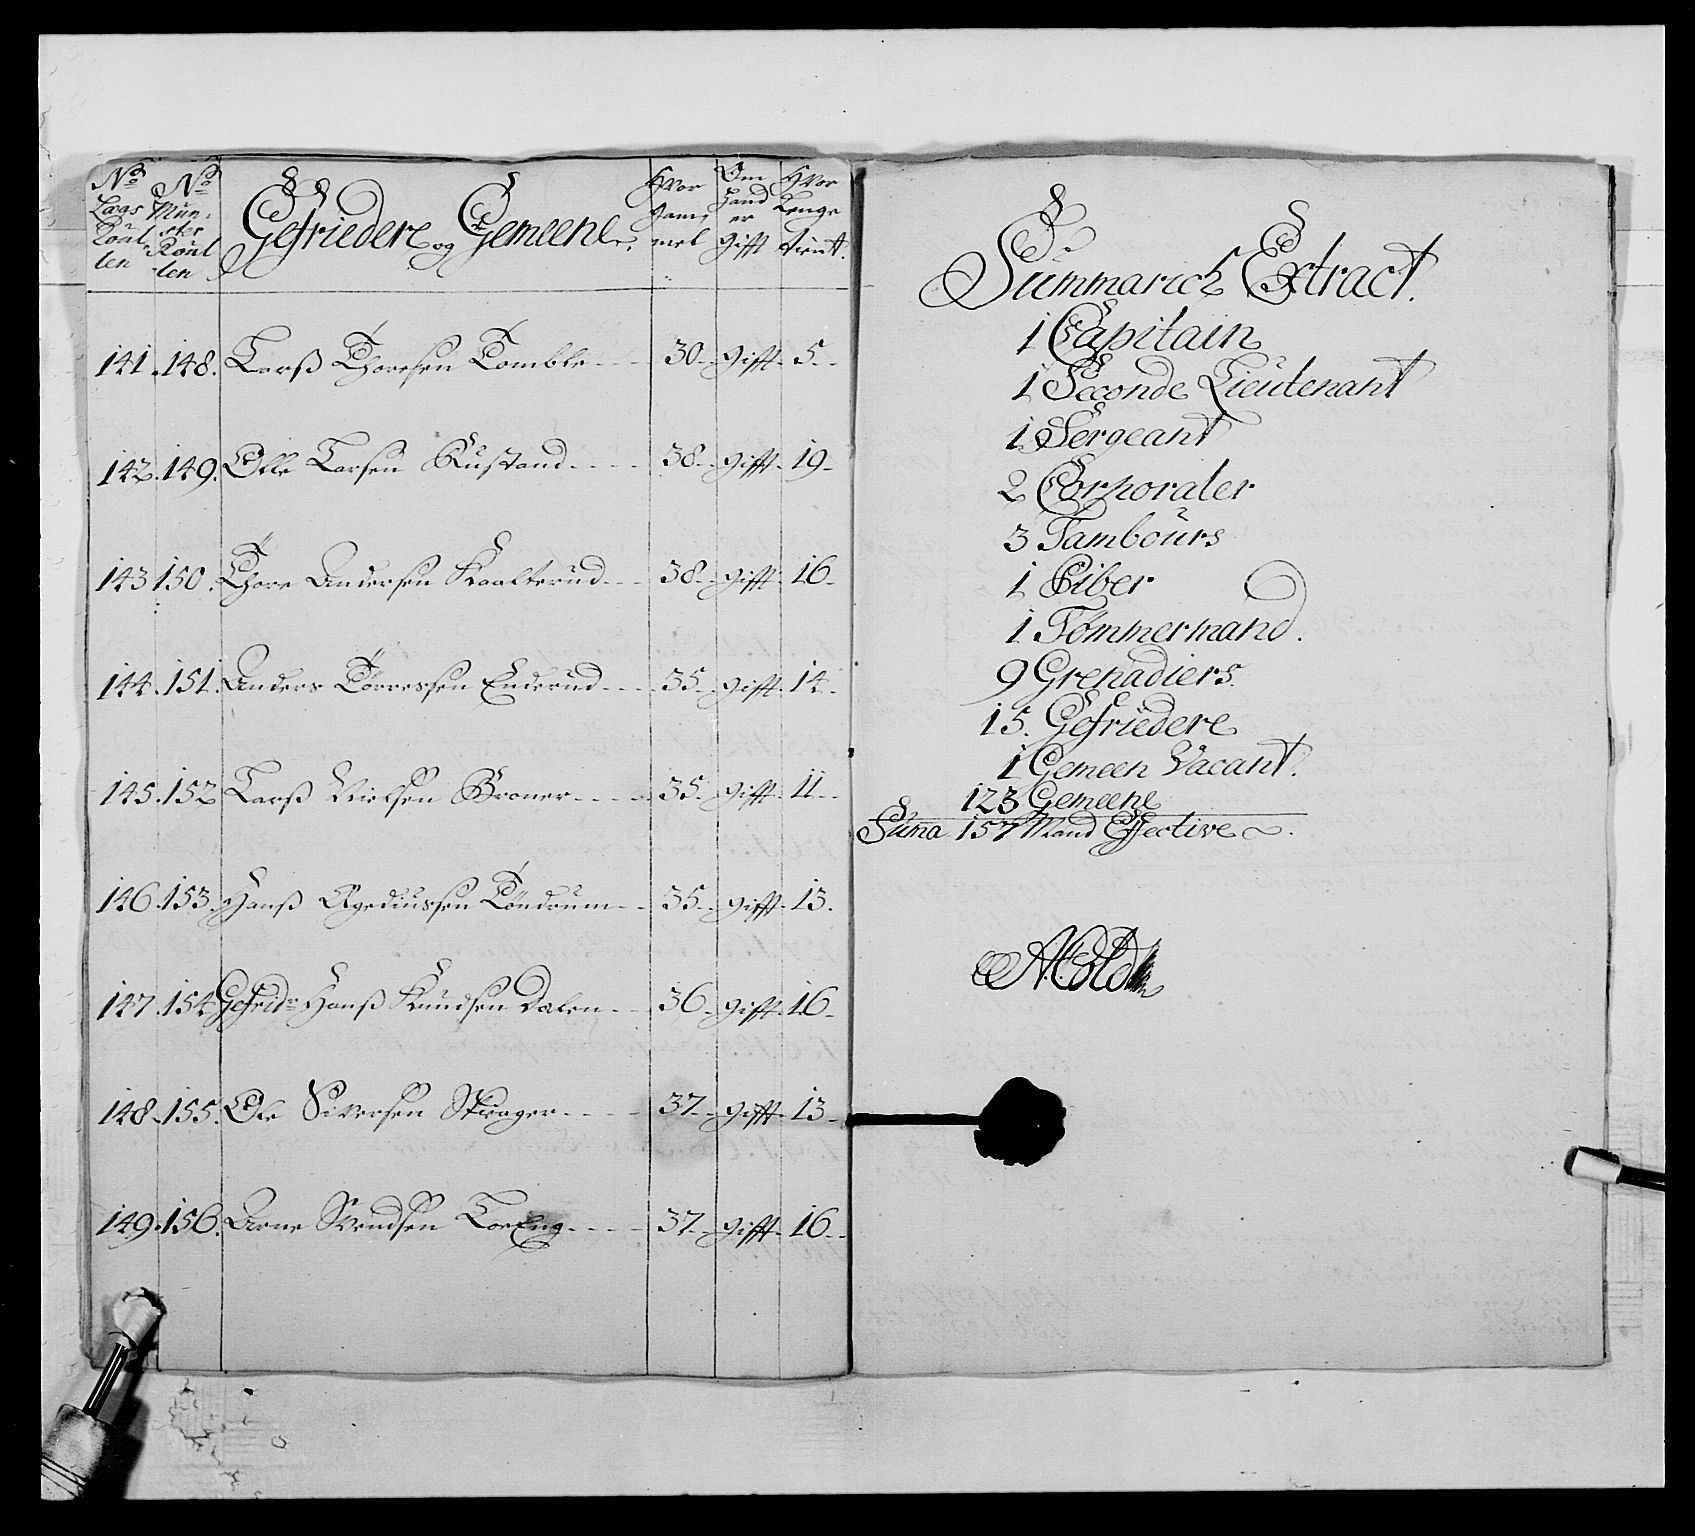 No No
Laas Mün-
Roul ster
len Roul
len
Gefriedere og Gemeene,
Hvor gam, mel
Om hand er gift
Hvor Lenge tient.
141. 148. Larß Thoresen Tomble - - - 30 - gifft - 5 - -
142. 149. Olle Larsen Rustand - - - - 38 - gifft - 19 -
143 150. Thore Andersen Kaalterud - - - 38 - gifft - 16 -
144. 151. Anders Törressen Enderud - - - 35 - gifft - 14 -
145. 152 Larß Nielsen Broner - - - - 35 - gifft - 11 - -
146. 153. Hanß Egediussen Töndrum - - 35 - gifft - 13.
147. 154 Gefrid.r Hanß Knudsen Dalen - - 36 - gifft - 16 -
148. 155. Ole Siversen Skrager - - - - 37 - gifft - 13 -
149. 156. Arne Svendsen Toreng - - - - 37 - gifft - 16 - -
Summarich Extract.
1 Capitain
1 Seconde Lieutenant
1 Sergeant
2 Corporaler
3 Tambours
1 Piber
1 Tømmermand.
9 Grenadiers.
15. Gefriedere
1 Gemeen Vacant.
123 Gemeene
Suma 157 Mand Effective